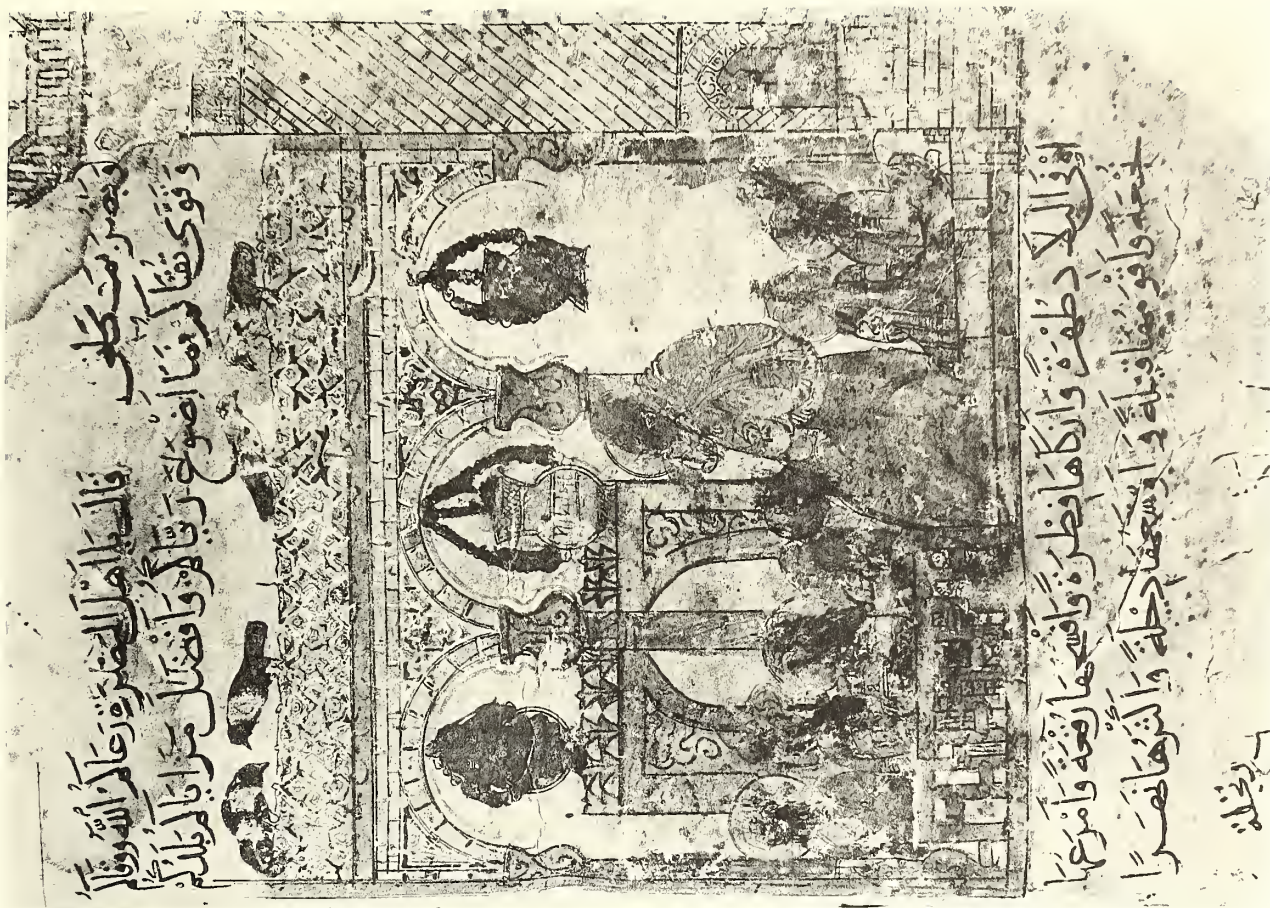 قال يا اهل البصرة رعاكم الله ووقاكم
وقوى تقاكم فما اضوع رياكم وافضل مزاياكم بلدكم
اوفى البلاد طهرة وازكاها فطرة وافسحها رقعة وامرعها
نجعة واقومها قبلة واوسعها دجلة واكثرها نهرا
ونخلة